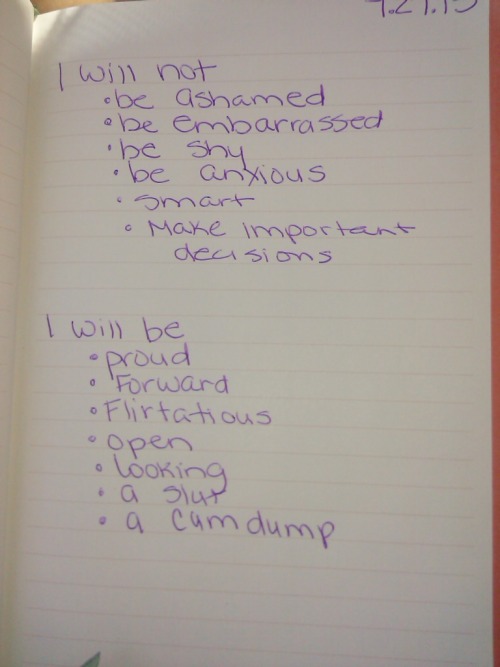 I will not
• be ashamed
• be embarrassed
• be shy
• be anxious
• smart
• Make important
decisions
I will be
• proud
• Forward
• Flirtatious
• open
• looking
• a slut
• a cum dump